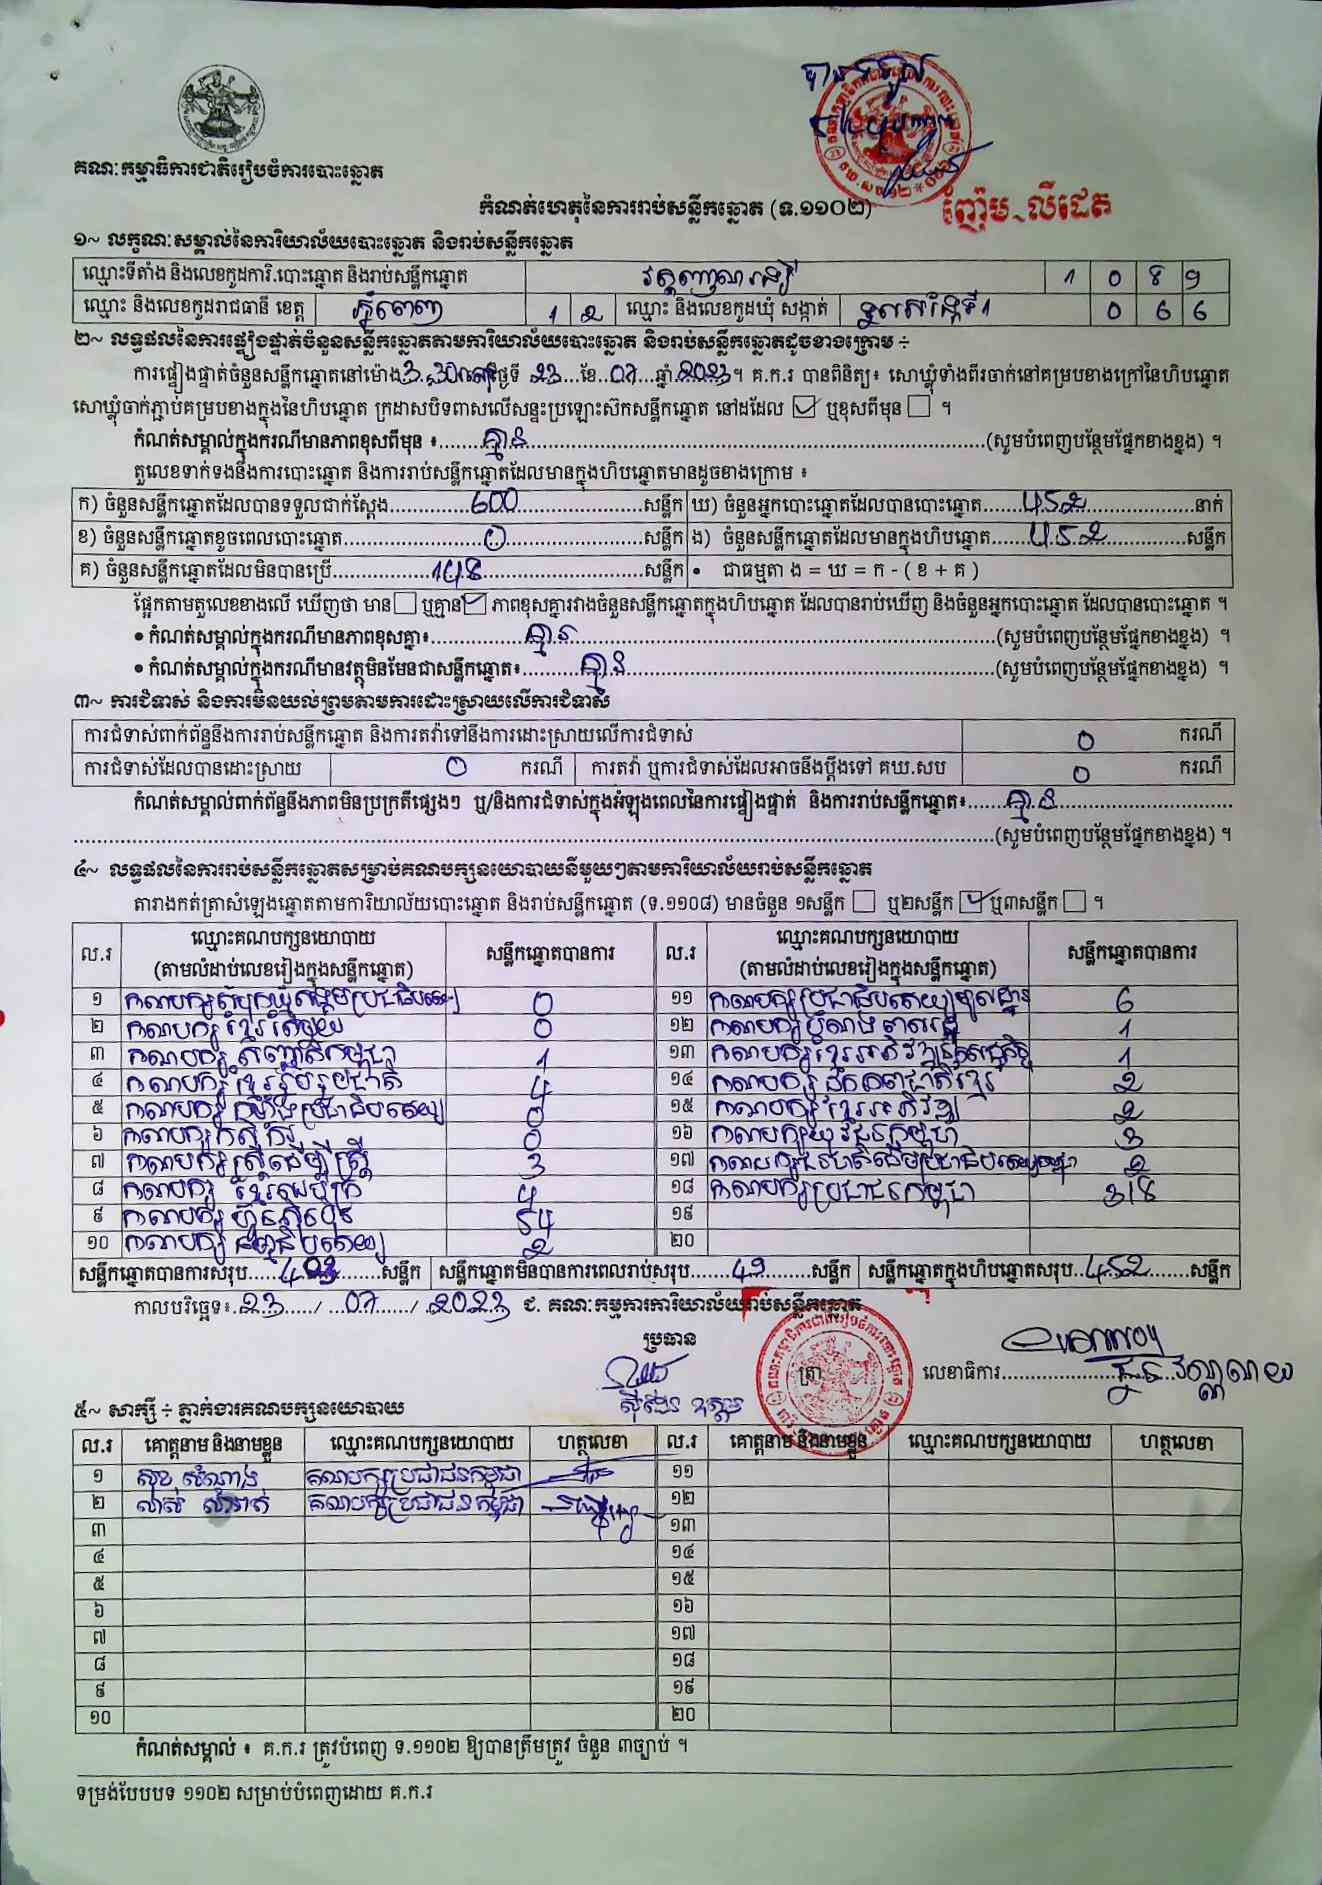 គណៈកម្មាធិការជាតិរៀបចំការបោះឆ្នោត
កំណត់ហេតុនៃការរាប់សន្លឹកឆ្នោត (ទ.១១០២)
ញ៉ែម លីដេត
១~ លក្ខណៈសម្គាល់នៃការិយាល័យបោះឆ្នោត និងរាប់សន្លឹកឆ្នោត
ឈ្មោះទីតាំង និងលេខកូដការិ.បោះឆ្នោត និងរាប់សន្លឹកឆ្នោត 1 0 8 9
ឈ្មោះ និងលេខកូដរាជធានី ខេត្ត ភ្នំពេញ 1 2 ឈ្មោះ និងលេខកូដឃុំ សង្កាត់ ទួលសង្កែទី1 0 6 6
២~ លទ្ធផលនៃការផ្ទៀងផ្ទាត់ចំនួនសន្លឹកឆ្នោតតាមការិយាល័យបោះឆ្នោត និងរាប់សន្លឹកឆ្នោតដូចខាងក្រោម ÷
ការផ្ទៀងផ្ទាត់ចំនួនសន្លឹកឆ្នោតនៅម៉ោង 3:30 ថ្ងៃទី 23 ខែ 07 ឆ្នាំ 2023។ គ.ក.រ បានពិនិត្យ៖ សោឃ្លុំទាំងពីរចាក់នៅគម្របខាងក្រៅនៃហិបឆ្នោត
សោឃ្លុំចាក់ភ្ជាប់គម្របខាងក្នុងនៃហិបឆ្នោត ក្រដាសបិទពាសលើសន្ទះប្រឡោះស៊កសន្លឹកឆ្នោត នៅដដែល ☑ ឬខុសពីមុន ☐ ។
កំណត់សម្គាល់ក្នុងករណីមានភាពខុសពីមុន ៖ គ្មាន (សូមបំពេញបន្ថែមផ្នែកខាងខ្នង) ។
តួលេខទាក់ទងនឹងការបោះឆ្នោត និងការរាប់សន្លឹកឆ្នោតដែលមានក្នុងហិបឆ្នោតមានដូចខាងក្រោម ៖
ក) ចំនួនសន្លឹកឆ្នោតដែលបានទទួលជាក់ស្តែង 600 សន្លឹក ឃ) ចំនួនអ្នកបោះឆ្នោតដែលបានបោះឆ្នោត 452 នាក់
ខ) ចំនួនសន្លឹកឆ្នោតខូចពេលបោះឆ្នោត 0 សន្លឹក ង) ចំនួនសន្លឹកឆ្នោតដែលមានក្នុងហិបឆ្នោត 452 សន្លឹក
គ) ចំនួនសន្លឹកឆ្នោតដែលមិនបានប្រើ 148 សន្លឹក • ជាធម្មតា ង = ឃ = ក - ( ខ + គ )
ផ្អែកតាមតួលេខខាងលើ ឃើញថា មាន ☐ ឬគ្មាន ☑ ភាពខុសគ្នារវាងចំនួនសន្លឹកឆ្នោតក្នុងហិបឆ្នោត ដែលបានរាប់ឃើញ និងចំនួនអ្នកបោះឆ្នោត ដែលបានបោះឆ្នោត ។
• កំណត់សម្គាល់ក្នុងករណីមានភាពខុសគ្នា៖ គ្មាន (សូមបំពេញបន្ថែមផ្នែកខាងខ្នង) ។
• កំណត់សម្គាល់ក្នុងករណីមានវត្ថុមិនមែនជាសន្លឹកឆ្នោត៖ គ្មាន (សូមបំពេញបន្ថែមផ្នែកខាងខ្នង) ។
៣~ ការជំទាស់ និងការមិនយល់ព្រមតាមការដោះស្រាយលើការជំទាស់
ការជំទាស់ពាក់ព័ន្ធនឹងការរាប់សន្លឹកឆ្នោត និងការតវ៉ាទៅនឹងការដោះស្រាយលើការជំទាស់ 0 ករណី
ការជំទាស់ដែលបានដោះស្រាយ 0 ករណី ការតវ៉ា ឬការជំទាស់ដែលអាចនឹងប្តឹងទៅ គឃ.សប 0 ករណី
កំណត់សម្គាល់ពាក់ព័ន្ធនឹងភាពមិនប្រក្រតីផ្សេងៗ ឬ/និងការជំទាស់ក្នុងអំឡុងពេលនៃការផ្ទៀងផ្ទាត់ និងការរាប់សន្លឹកឆ្នោត៖ គ្មាន
(សូមបំពេញបន្ថែមផ្នែកខាងខ្នង) ។
៤~ លទ្ធផលនៃការរាប់សន្លឹកឆ្នោតសម្រាប់គណបក្សនយោបាយនីមួយៗតាមការិយាល័យរាប់សន្លឹកឆ្នោត
តារាងកត់ត្រាសំឡេងឆ្នោតតាមការិយាល័យបោះឆ្នោត និងរាប់សន្លឹកឆ្នោត (ទ.១១០៨) មានចំនួន ១សន្លឹក ☐ ឬ២សន្លឹក ☑ ឬ៣សន្លឹក ☐ ។
ល.រ ឈ្មោះគណបក្សនយោបាយ (តាមលំដាប់លេខរៀងក្នុងសន្លឹកឆ្នោត) សន្លឹកឆ្នោតបានការ ល.រ ឈ្មោះគណបក្សនយោបាយ (តាមលំដាប់លេខរៀងក្នុងសន្លឹកឆ្នោត) សន្លឹកឆ្នោតបានការ
១ គណបក្សសំបុកឃ្មុំសង្គមប្រជាធិបតេយ្យ 0 ១១ គណបក្សប្រជាធិបតេយ្យមូលដ្ឋាន 6
២ គណបក្សខ្មែរតែមួយ 0 ១២ គណបក្សបំណងពលរដ្ឋ 1
៣ គណបក្សសញ្ជាតិកម្ពុជា 1 ១៣ គណបក្សខ្មែរអភិវឌ្ឍន៍សេដ្ឋកិច្ច 1
៤ គណបក្សខ្មែររួបរួមជាតិ 4 ១៤ គណបក្សឯកភាពជាតិខ្មែរ 2
៥ គណបក្សកម្លាំងប្រជាធិបតេយ្យ 0 ១៥ គណបក្សខ្មែរអភិវឌ្ឍ 2
៦ គណបក្សកសិករ 0 ១៦ គណបក្សយុវជនកម្ពុជា 3
៧ គណបក្សស្ត្រីដើម្បីស្ត្រី 3 ១៧ គណបក្សធម្មាធិបតេយ្យ 2
៨ គណបក្សខ្មែរអភិរក្ស 4 ១៨ គណបក្សប្រជាជនកម្ពុជា 318
៩ គណបក្សហ៊្វុនស៊ិនប៉ិច 54 ១៩
១០ គណបក្សធម្មាធិបតេយ្យ 2 ២០
សន្លឹកឆ្នោតបានការសរុប 403 សន្លឹក សន្លឹកឆ្នោតមិនបានការពេលរាប់សរុប 49 សន្លឹក សន្លឹកឆ្នោតក្នុងហិបឆ្នោតសរុប 452 សន្លឹក
កាលបរិច្ឆេទ៖ 23 / 07 / 2023 ជ. គណៈកម្មការការិយាល័យរាប់សន្លឹកឆ្នោត
ប្រធាន ត្រា លេខាធិការ
៥~ សាក្សី ÷ ភ្នាក់ងារគណបក្សនយោបាយ
ល.រ គោត្តនាម និងនាមខ្លួន ឈ្មោះគណបក្សនយោបាយ ហត្ថលេខា ល.រ គោត្តនាម និងនាមខ្លួន ឈ្មោះគណបក្សនយោបាយ ហត្ថលេខា
១ សុខ សំណាង គណបក្សប្រជាជនកម្ពុជា ១១
២ គណបក្សប្រជាជនកម្ពុជា ១២
៣ ១៣
៤ ១៤
៥ ១៥
៦ ១៦
៧ ១៧
៨ ១៨
៩ ១៩
១០ ២០
កំណត់សម្គាល់ ៖ គ.ក.រ ត្រូវបំពេញ ទ.១១០២ ឱ្យបានត្រឹមត្រូវ ចំនួន ៣ច្បាប់ ។
ទម្រង់បែបបទ ១១០២ សម្រាប់បំពេញដោយ គ.ក.រ